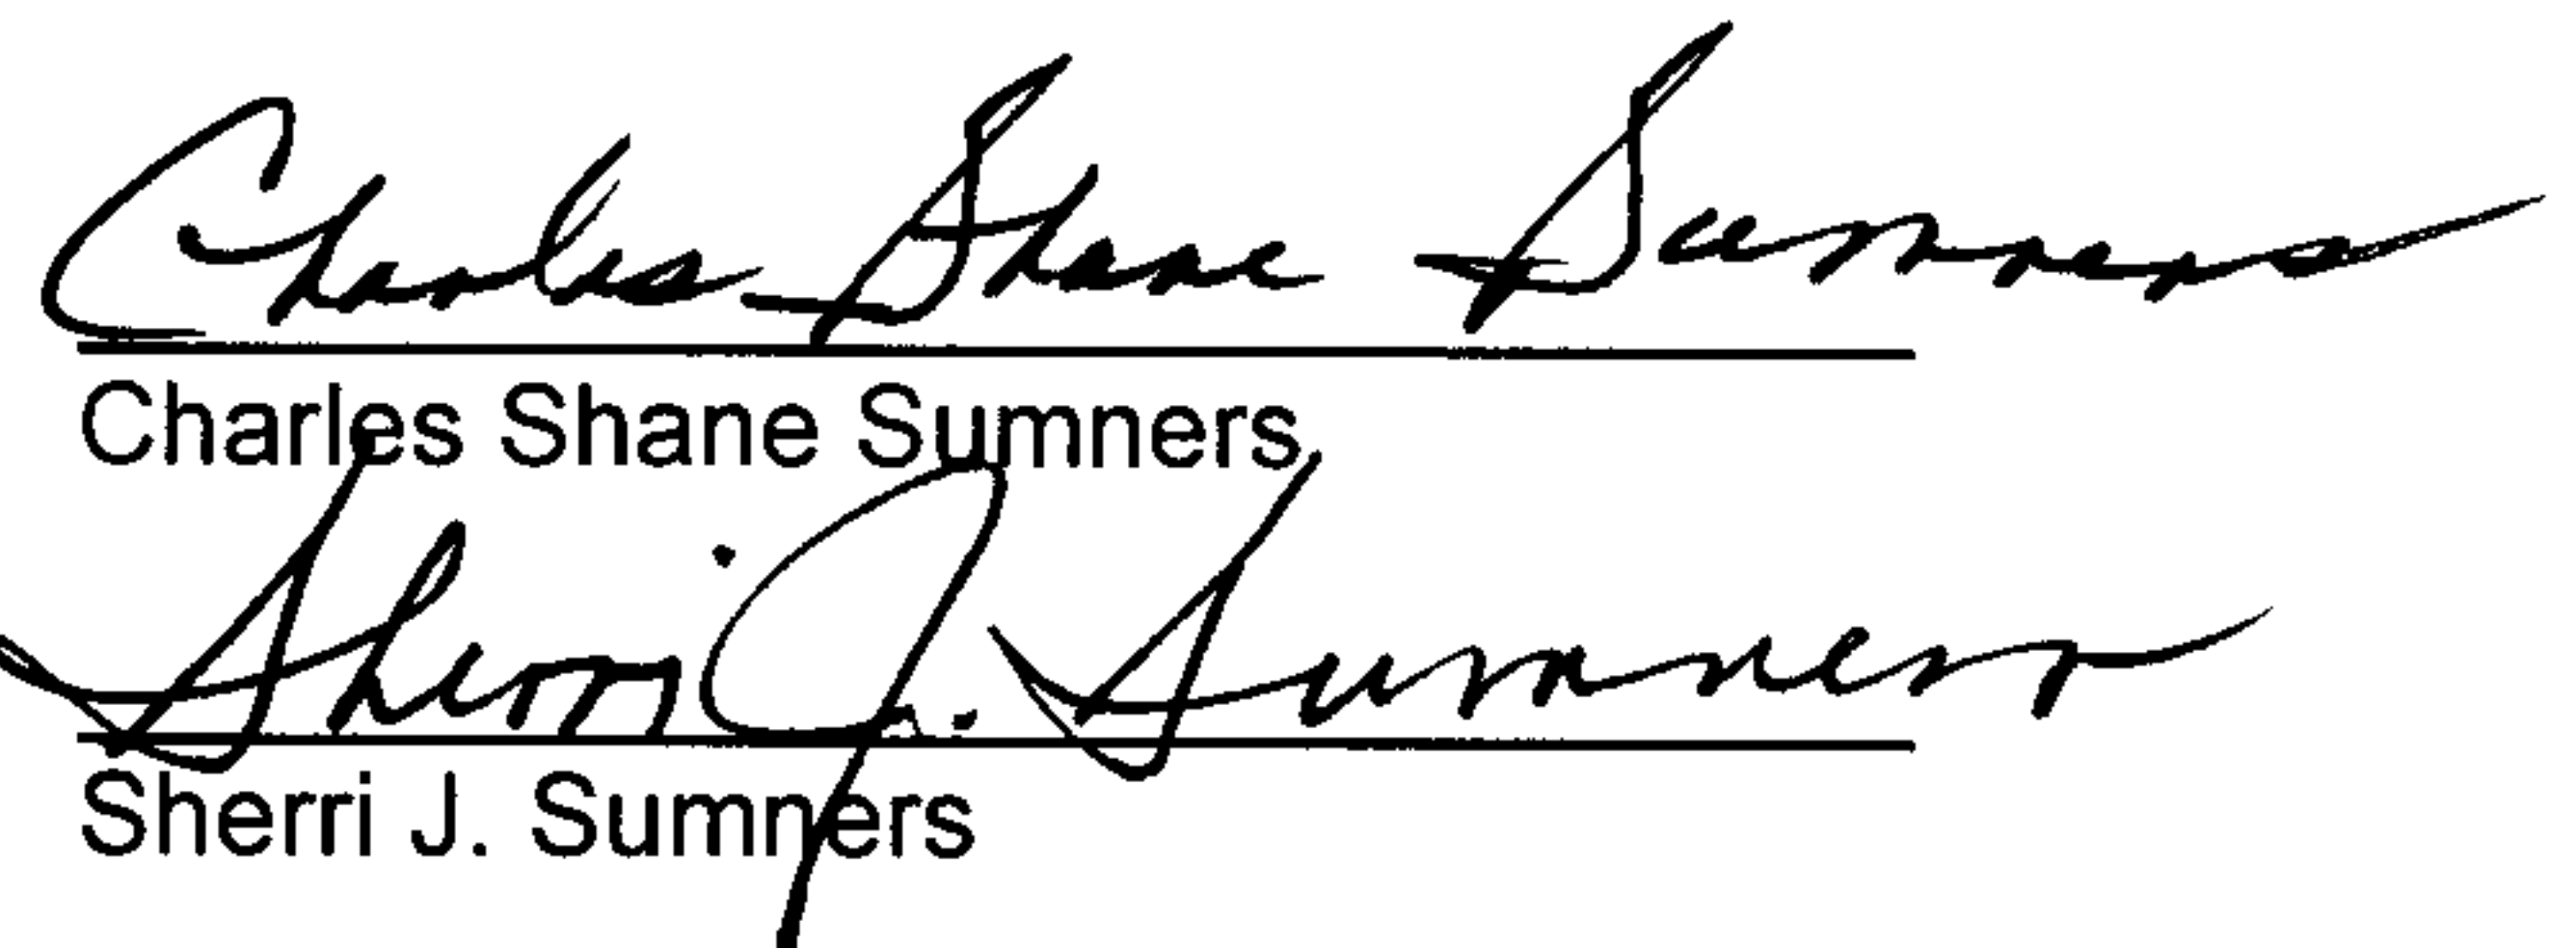 Charles Shane Sumners
Charles Shane Sumners
Sherri J. Sumners
Sherri J. Sumners